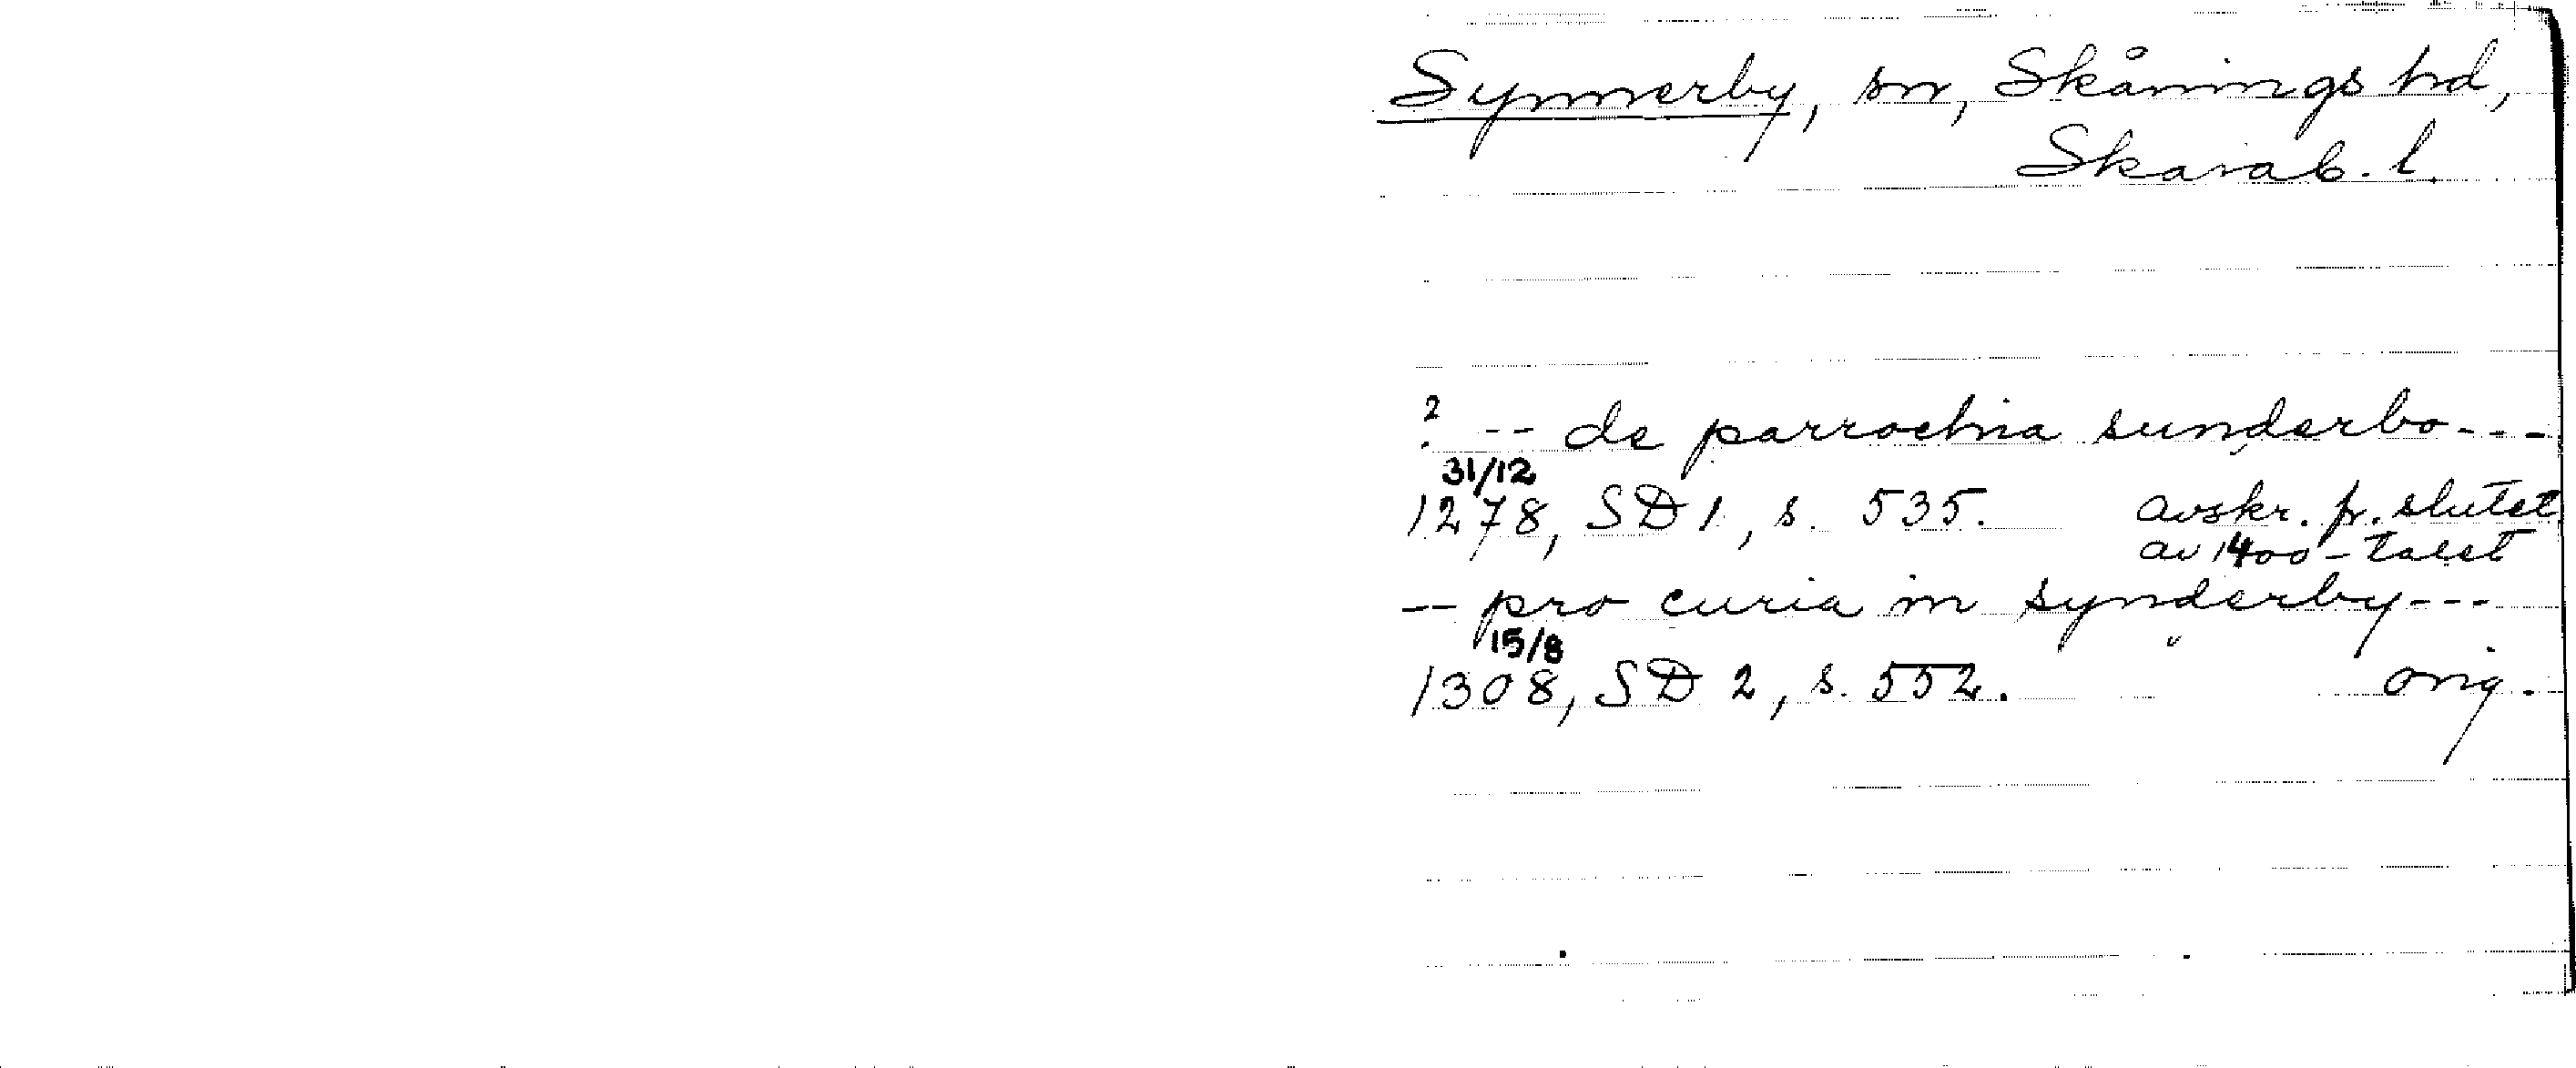 Synnerby, sn, Skånings hd,
Skarab. l.
? -- de parrochia sunderbo ---
31/12
1278, SD 1, s. 535. avskr. fr. slutet
av 1400-talet
-- pro curia in synderby ---
15/8
1308, SD 2, s. 552. orig.